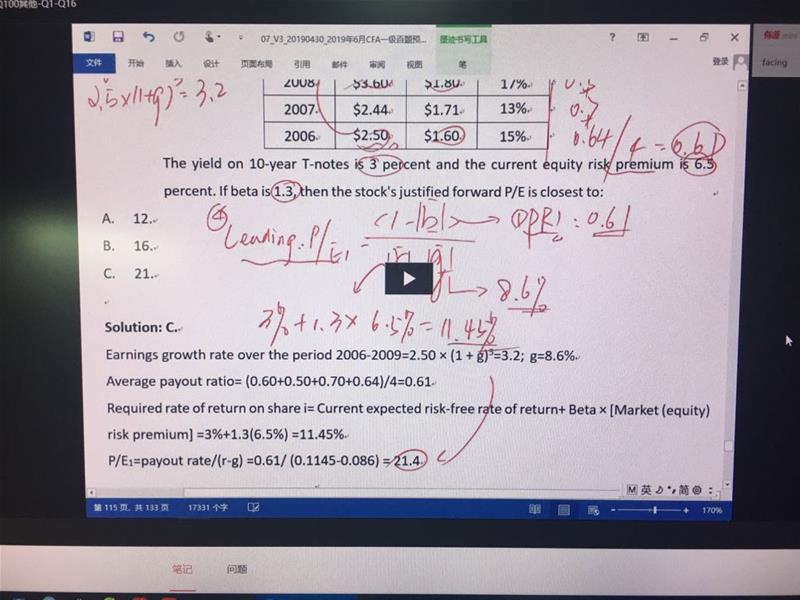 Q100其他-Q1-Q16
07_V3_20190430_2019年6月CFA一级百题预...
墨迹书写工具
有道 mini
facing
文件 开始 插入 设计 页面布局 引用 邮件 审阅 视图 笔
登录
2008 $3.60 $1.80 17%
2007 $2.44 $1.71 13%
2006 $2.50 $1.60 15%
2.5×(1+g)³=3.2
0.64/4=0.61
The yield on 10-year T-notes is 3 percent and the current equity risk premium is 6.5
percent. If beta is 1.3, then the stock's justified forward P/E is closest to:
A. 12.
B. 16.
C. 21.
④ Leading. P/E1 =
DPR1: 0.61
8.6%
3%+1.3×6.5%=11.45%
Solution: C.
Earnings growth rate over the period 2006-2009=2.50 × (1 + g)³=3.2; g=8.6%
Average payout ratio= (0.60+0.50+0.70+0.64)/4=0.61
Required rate of return on share i= Current expected risk-free rate of return+ Beta × [Market (equity)
risk premium] =3%+1.3(6.5%) =11.45%
P/E₁=payout rate/(r-g) =0.61/ (0.1145-0.086) =21.4
M 英 简
第 115 页, 共 133 页 17331 个字
170%
笔记 问题